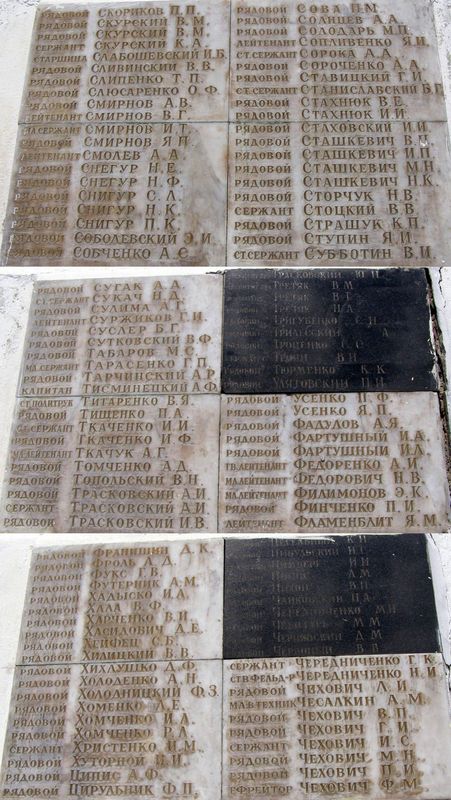 РЯДОВОЙ СКОРЯКОВ П.П.
РЯДОВОЙ СКУРСКИЙ В.М.
РЯДОВОЙ СКУРСКИЙ В.М.
СЕРЖАНТ СКУРСКИЙ К.А.
СТАРШИНА СЛАБОШЕВСКИЙ И.Б.
РЯДОВОЙ СЛИВИНСКИЙ В.В.
РЯДОВОЙ СЛИПЕНКО Т.П.
РЯДОВОЙ СЛЮСАРЕНКО О.Ф.
РЯДОВОЙ СМИРНОВ А.В.
ЛЕЙТЕНАНТ СМИРНОВ В.Г.
МЛ.СЕРЖАНТ СМИРНОВ И.Т.
РЯДОВОЙ СМИРНОВ Я.П.
ЛЕЙТЕНАНТ СМОЛЕВ А.А.
РЯДОВОЙ СНЕГУР Н.Е.
РЯДОВОЙ СНЕГУР Н.Ф.
РЯДОВОЙ СНИГУР С.Л.
РЯДОВОЙ СНИГУР Н.К.
РЯДОВОЙ СНИГУР П.К.
РЯДОВОЙ СОБОЛЕВСКИЙ Э.И.
РЯДОВОЙ СОБЧЕНКО А.С.
РЯДОВОЙ СОВА П.М.
РЯДОВОЙ СОЛНЦЕВ А.А.
РЯДОВОЙ СОЛОДАРЬ М.П.
ЛЕЙТЕНАНТ СОПЛИВЕНКО Я.Н.
СТ.СЕРЖАНТ СОРОКА А.А.
РЯДОВОЙ СОРОЧЕНКО А.А.
РЯДОВОЙ СТАВИЦКИЙ Г.И.
СТ.СЕРЖАНТ СТАНИСЛАВСКИЙ Б.Г.
РЯДОВОЙ СТАХНЮК В.Е.
РЯДОВОЙ СТАХНЮК И.И.
РЯДОВОЙ СТАХОВСКИЙ И.И.
РЯДОВОЙ СТАШКЕВИЧ В.Н.
РЯДОВОЙ СТАШКЕВИЧ И.П.
РЯДОВОЙ СТАШКЕВИЧ М.Н.
РЯДОВОЙ СТАШКЕВИЧ Н.К.
РЯДОВОЙ СТОРЧУК Н.В.
СЕРЖАНТ СТОЦКИЙ В.В.
РЯДОВОЙ СТРАЩУК К.П.
РЯДОВОЙ СТУПИН Я.И.
СТ.СЕРЖАНТ СУББОТИН В.И.
РЯДОВОЙ СУГАК А.А.
СТ.СЕРЖАНТ СУКАЧ Н.Д.
РЯДОВОЙ СУЛИМА А.Г.
ЛЕЙТЕНАНТ СУРЖИКОВ Г.И.
РЯДОВОЙ СУСЛЕР Б.Г.
РЯДОВОЙ СУТКОВСКИЙ В.Ф.
РЯДОВОЙ ТАБАРОВ М.С.
МЛ.СЕРЖАНТ ТАРАСЕНКО Г.П.
РЯДОВОЙ ТАРЧИНСКИЙ А.Р.
КАПИТАН ТИСМИНЕЦКИЙ А.Ф.
СТ.ПОЛИТРУК ТИТАРЕНКО В.Я.
РЯДОВОЙ ТИЩЕНКО П.А.
СТ.СЕРЖАНТ ТКАЧЕНКО И.И.
РЯДОВОЙ ТКАЧЕНКО И.Ф.
МЛ.ЛЕЙТЕНАНТ ТКАЧУК А.Г.
РЯДОВОЙ ТОМЧЕНКО А.Д.
РЯДОВОЙ ТОПОЛЬСКИЙ В.Н.
РЯДОВОЙ ТРАСКОВСКИЙ А.И.
СЕРЖАНТ ТРАСКОВСКИЙ А.И.
РЯДОВОЙ ТРАСКОВСКИЙ И.В.
ТРАСКОВСКИЙ Ю.Н.
ТРЕТЯК В.М.
ТРЕТЯК В.Г.
ТРЕТЯК
ТРИГУБЕНКО С.Н.
ТРОЦЕНКО С.С.
В.И.
ТЮРМЕНКО К.К.
УЛЯТОВСКИЙ П.Н.
РЯДОВОЙ УСЕНКО П.Ф.
РЯДОВОЙ УСЕНКО Я.П.
РЯДОВОЙ ФАДУЛОВ А.Я.
РЯДОВОЙ ФАРТУШНЫЙ И.А.
РЯДОВОЙ ФАРТУШНЫЙ И.Д.
ГВ.ЛЕЙТЕНАНТ ФЕДОРЕНКО А.И.
МЛ.ЛЕЙТЕНАНТ ФЕДОРОВИЧ Н.В.
МЛ.ЛЕЙТЕНАНТ ФИЛИМОНОВ Э.К.
РЯДОВОЙ ФИНЧЕНКО П.И.
ЛЕЙТЕНАНТ ФЛАМЕНБЛИТ Я.М.
РЯДОВОЙ ФРАНИШИН Д.К.
РЯДОВОЙ ФРОЛЬ А.Д.
РЯДОВОЙ ФУКС Г.В.
РЯДОВОЙ ФУТЕРНИК А.М.
РЯДОВОЙ ХАДЫСКО И.А.
РЯДОВОЙ ХАЛА В.Ф.
РЯДОВОЙ ХАРЧЕНКО В.И.
РЯДОВОЙ ХАСИЛОВИЧ А.Е.
РЯДОВОЙ ХЕЙФЕЦ С.Б.
РЯДОВОЙ ХИЛИЦКИЙ В.В.
РЯДОВОЙ ХИХЛУШКО Д.Ф.
РЯДОВОЙ ХОЛОДЕНКО А.Н.
РЯДОВОЙ ХОЛОДНИЦКИЙ Ф.З.
РЯДОВОЙ ХОМЕНКО Л.Е.
РЯДОВОЙ ХОМЧЕНКО И.А.
РЯДОВОЙ ХОМЧЕНКО Р.А.
СЕРЖАНТ ХРИСТЕНКО И.М.
РЯДОВОЙ ХУТОРНОЙ И.И.
РЯДОВОЙ ЦИПИС А.Ф.
РЯДОВОЙ ЦИРУЛЬНИК Ф.П.
ЦИБУЛЬСКИЙ Н.Г.
И.И.
А.М.
В.П.
ЧАЙКОВСКИЙ П.А.
ЧЕРЕДНИЧЕНКО М.И.
М.М.
Д.М.
В.В.
СЕРЖАНТ ЧЕРЕДНИЧЕНКО Г.К.
СТ.ФЕЛЬД-Р ЧЕРЕДНИЧЕНКО Н.И.
РЯДОВОЙ ЧИХОВИЧ Л.И.
МЛ.В.ТЕХНИК ЧЕСАЛКИН А.М.
РЯДОВОЙ ЧЕХОВИЧ В.П.
РЯДОВОЙ ЧЕХОВИЧ Г.И.
СЕРЖАНТ ЧЕХОВИЧ И.С.
РЯДОВОЙ ЧЕХОВИЧ М.Н.
РЯДОВОЙ ЧЕХОВИЧ П.И.
ЕФРЕЙТОР ЧЕХОВИЧ Ф.М.